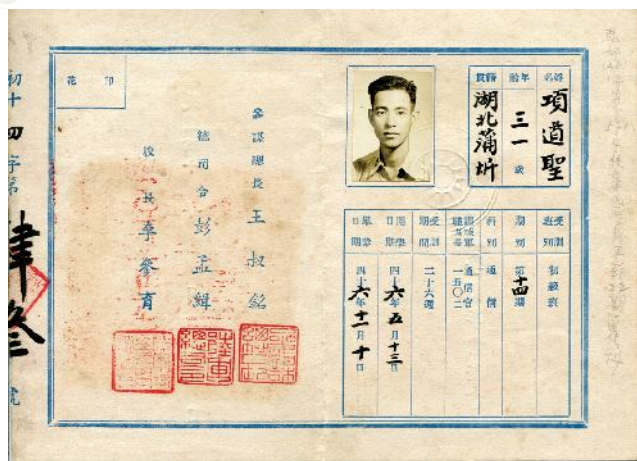 姓名 項道聖
年齡 三一歲
籍貫 湖北蒲圻
受訓班別 初級班
期別 第十四期
科別 通信
通信官
一五〇二
受訓期間 二十六週
開學日期 四十六年五月十三日
畢業日期 四十六年十一月十日
參謀總長 王叔銘
總司令 彭孟緝
校長 李參育
印花
初十四字第
號